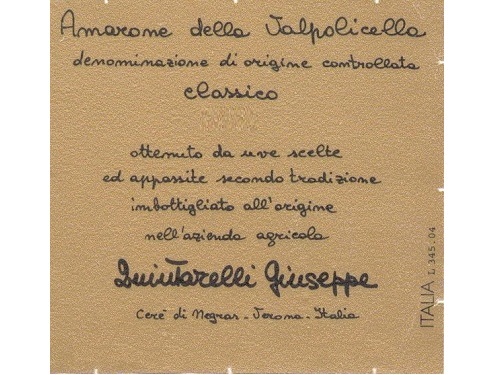 Amarone della Valpolicella
denominazione di origine controllata
classico
ottenuto da uve scelte
ed appassite secondo tradizione
imbottigliato all'origine
nell'azienda agricola
Quintarelli Giuseppe
Cerè di Negrar - Verona - Italia
ITALIA L 345 04